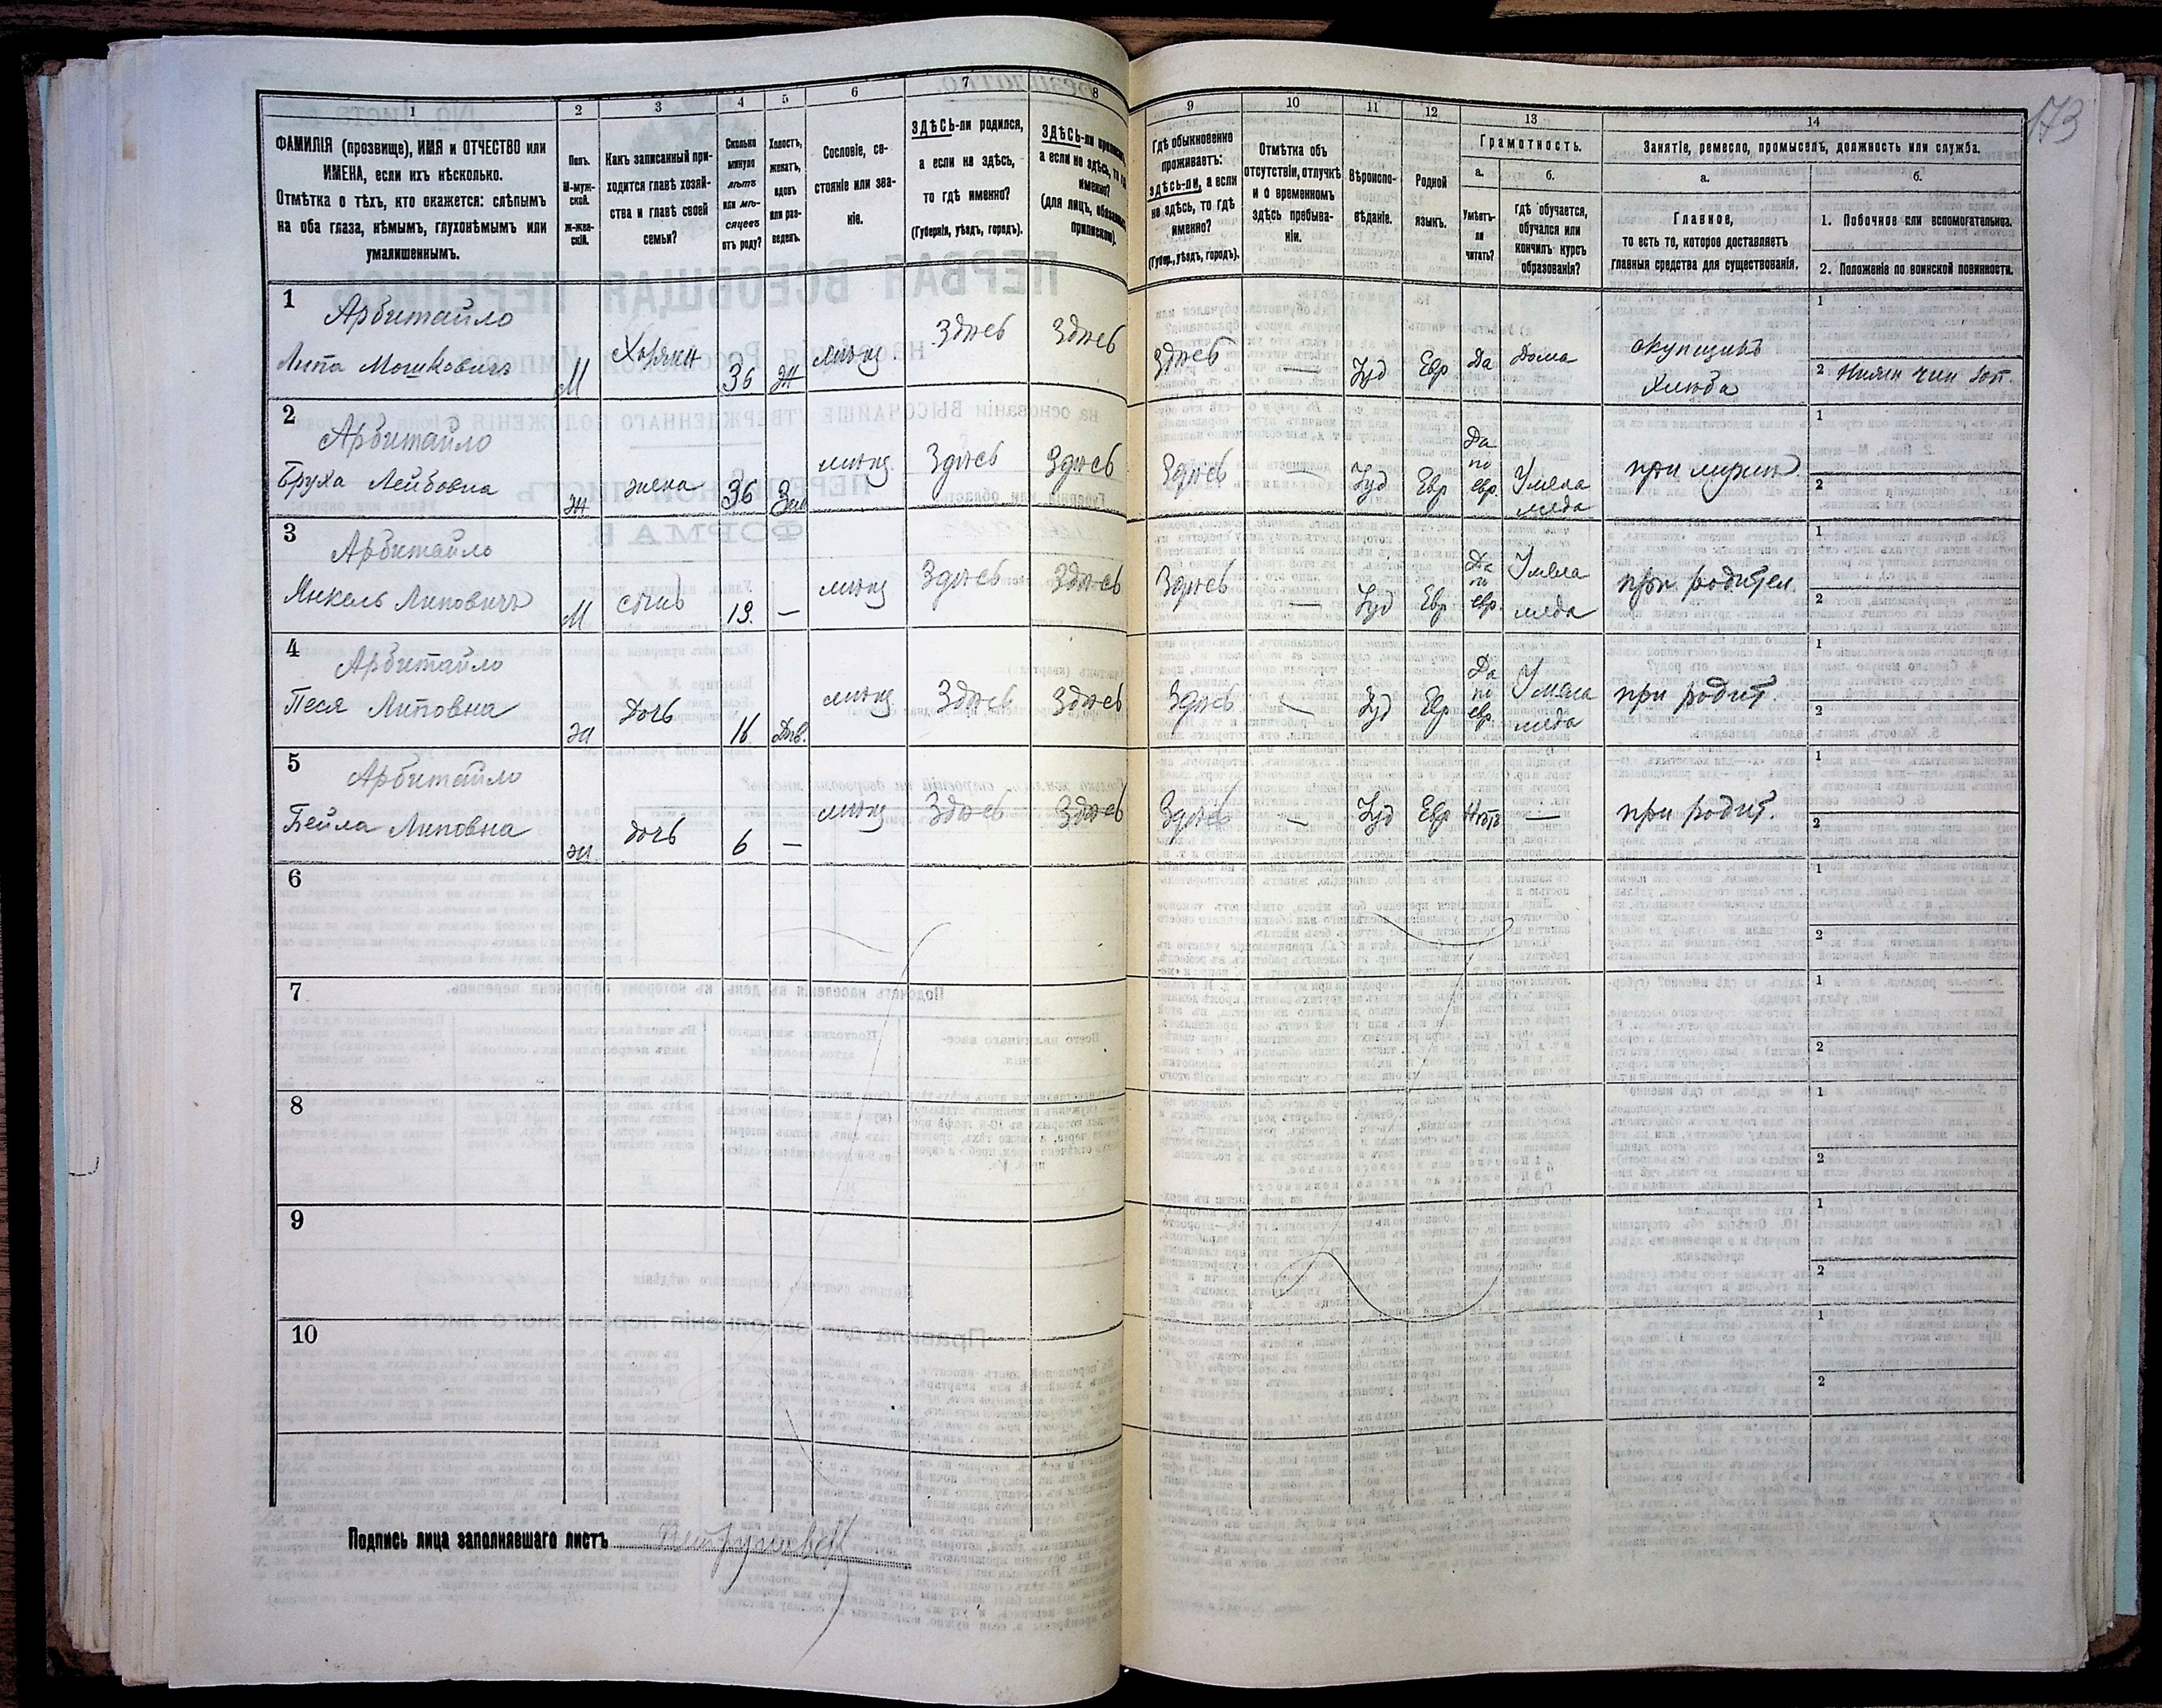 173
1
2
3
4
5
6
7
8
9
10
11
12
13
14
ФАМИЛІЯ (прозвище), ИМЯ и ОТЧЕСТВО или
ИМЕНА, если ихъ нѣсколько.
Отмѣтка о тѣхъ, кто окажется: слѣпымъ
на оба глаза, нѣмымъ, глухонѣмымъ или
умалишеннымъ.
Полъ.
М-муж-
ской.
Ж-жен-
скій.
Какъ записанный при-
ходится главѣ хозяй-
ства и главѣ своей
семьи?
Сколько
минуло
лѣтъ
или мѣ-
сяцевъ
отъ роду?
Холостъ,
женатъ,
вдовъ
или раз-
веденъ.
Сословіе, со-
стояніе или зва-
ніе.
ЗДѢСЬ-ли родился,
а если не здѣсь,
то гдѣ именно?
(Губернія, уѣздъ, городъ).
ЗДѢСЬ-ли приписанъ,
а если не здѣсь, то гдѣ
именно?
(для лицъ, обязанныхъ
припискою).
Гдѣ обыкновенно
проживаетъ:
здѣсь-ли, а если
не здѣсь, то гдѣ
именно?
(Губер., уѣздъ, городъ).
Отмѣтка объ
отсутствіи, отлучкѣ
и о временномъ
здѣсь пребыва-
ніи.
Вѣроиспо-
вѣданіе.
Родной
языкъ.
Грамотность.
а.
Умѣетъ-
ли
читать?
б.
гдѣ обучается,
обучался или
кончилъ курсъ
образованія?
Занятіе, ремесло, промыселъ, должность или служба.
а.
Главное,
то есть то, которое доставляетъ
главныя средства для существованія.
б.
1. Побочное или вспомогательное.
2. Положеніе по воинской повинности.
1
Арбитайло
Липа Мошковичъ
М
Хозяин
36
Ж
мѣщ
Здѣсь
Здѣсь
Здѣсь
—
Іуд
Евр
Да
Дома
скупщикъ
Хлѣба
1
2
2
Арбитайло
Бруха Лейбовна
Ж
жена
36
Зам
мѣщ
Здѣсь
Здѣсь
Здѣсь
—
Іуд
Евр
Да
по
евр.
У мела
меда
при муже
1
2
3
Арбитайло
Янкель Липовичъ
М
сынъ
19.
—
мѣщ
Здѣсь
Здѣсь
Здѣсь
—
Іуд
Евр.
Да
по
евр.
У мела
меда
при родител.
1
2
4
Арбитайло
Песя Липовна
ж
Дочь
16
Дѣв.
мѣщ
Здѣсь
Здѣсь
Здѣсь
—
Іуд
Евр
Да
по
евр.
У мела
меда
при родит
1
2
5
Арбитайло
Бейла Липовна
ж
дочь
6
—
мѣщ
Здѣсь
Здѣсь
Здѣсь
—
Іуд
Евр
Нѣтъ
—
при родит.
1
2
6
1
2
7
1
2
8
1
2
9
1
2
10
1
2
Подпись лица заполнявшаго листъ